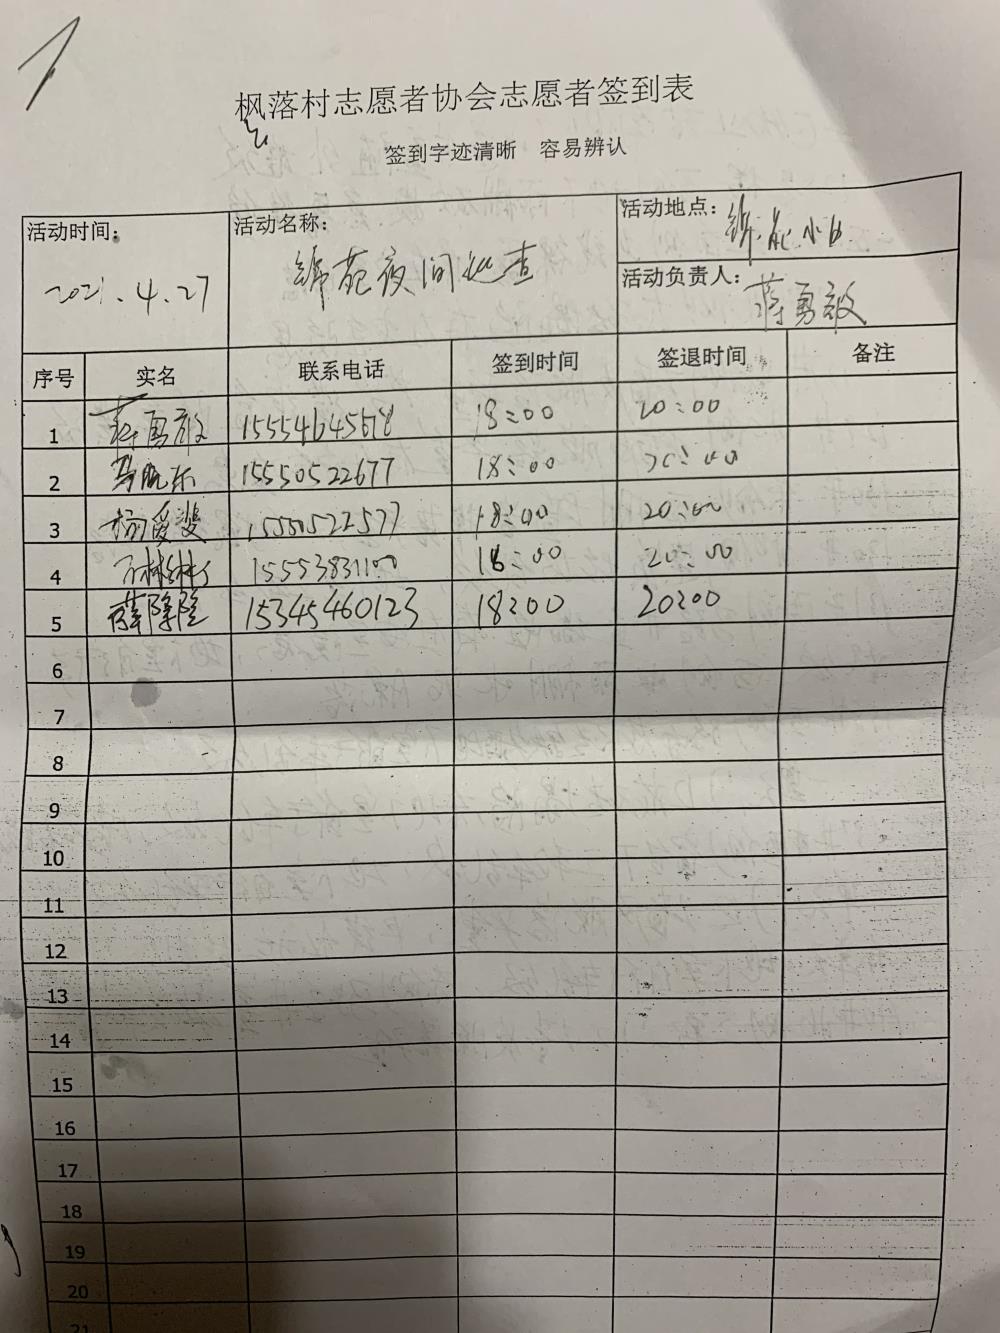 枫落村志愿者协会志愿者签到表
签到字迹清晰 容易辨认
活动时间: 2021.4.27
活动名称: 锦苑夜间巡查
活动地点: 锦苑小区
活动负责人: 蒋勇敏
序号 实名 联系电话 签到时间 签退时间 备注
1 蒋勇敏 15554645678 18:00 20:00
2 15550522677 18:00 20:00
3 杨爱斐 15550522577 18:00 20:00
4 15553831100 18:00 20:00
5 薛隆隆 15345460123 18:00 20:00
6
7
8
9
10
11
12
13
14
15
16
17
18
19
20
21